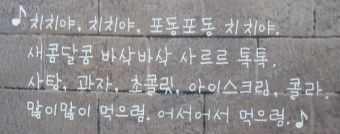 ♪치치야, 치치야, 포동포동 치치야.
새콤달콤 바삭바삭 사르르 톡톡.
사탕, 과자, 초콜릿, 아이스크림, 콜라.
많이많이 먹으렴. 어서어서 먹으렴.♪